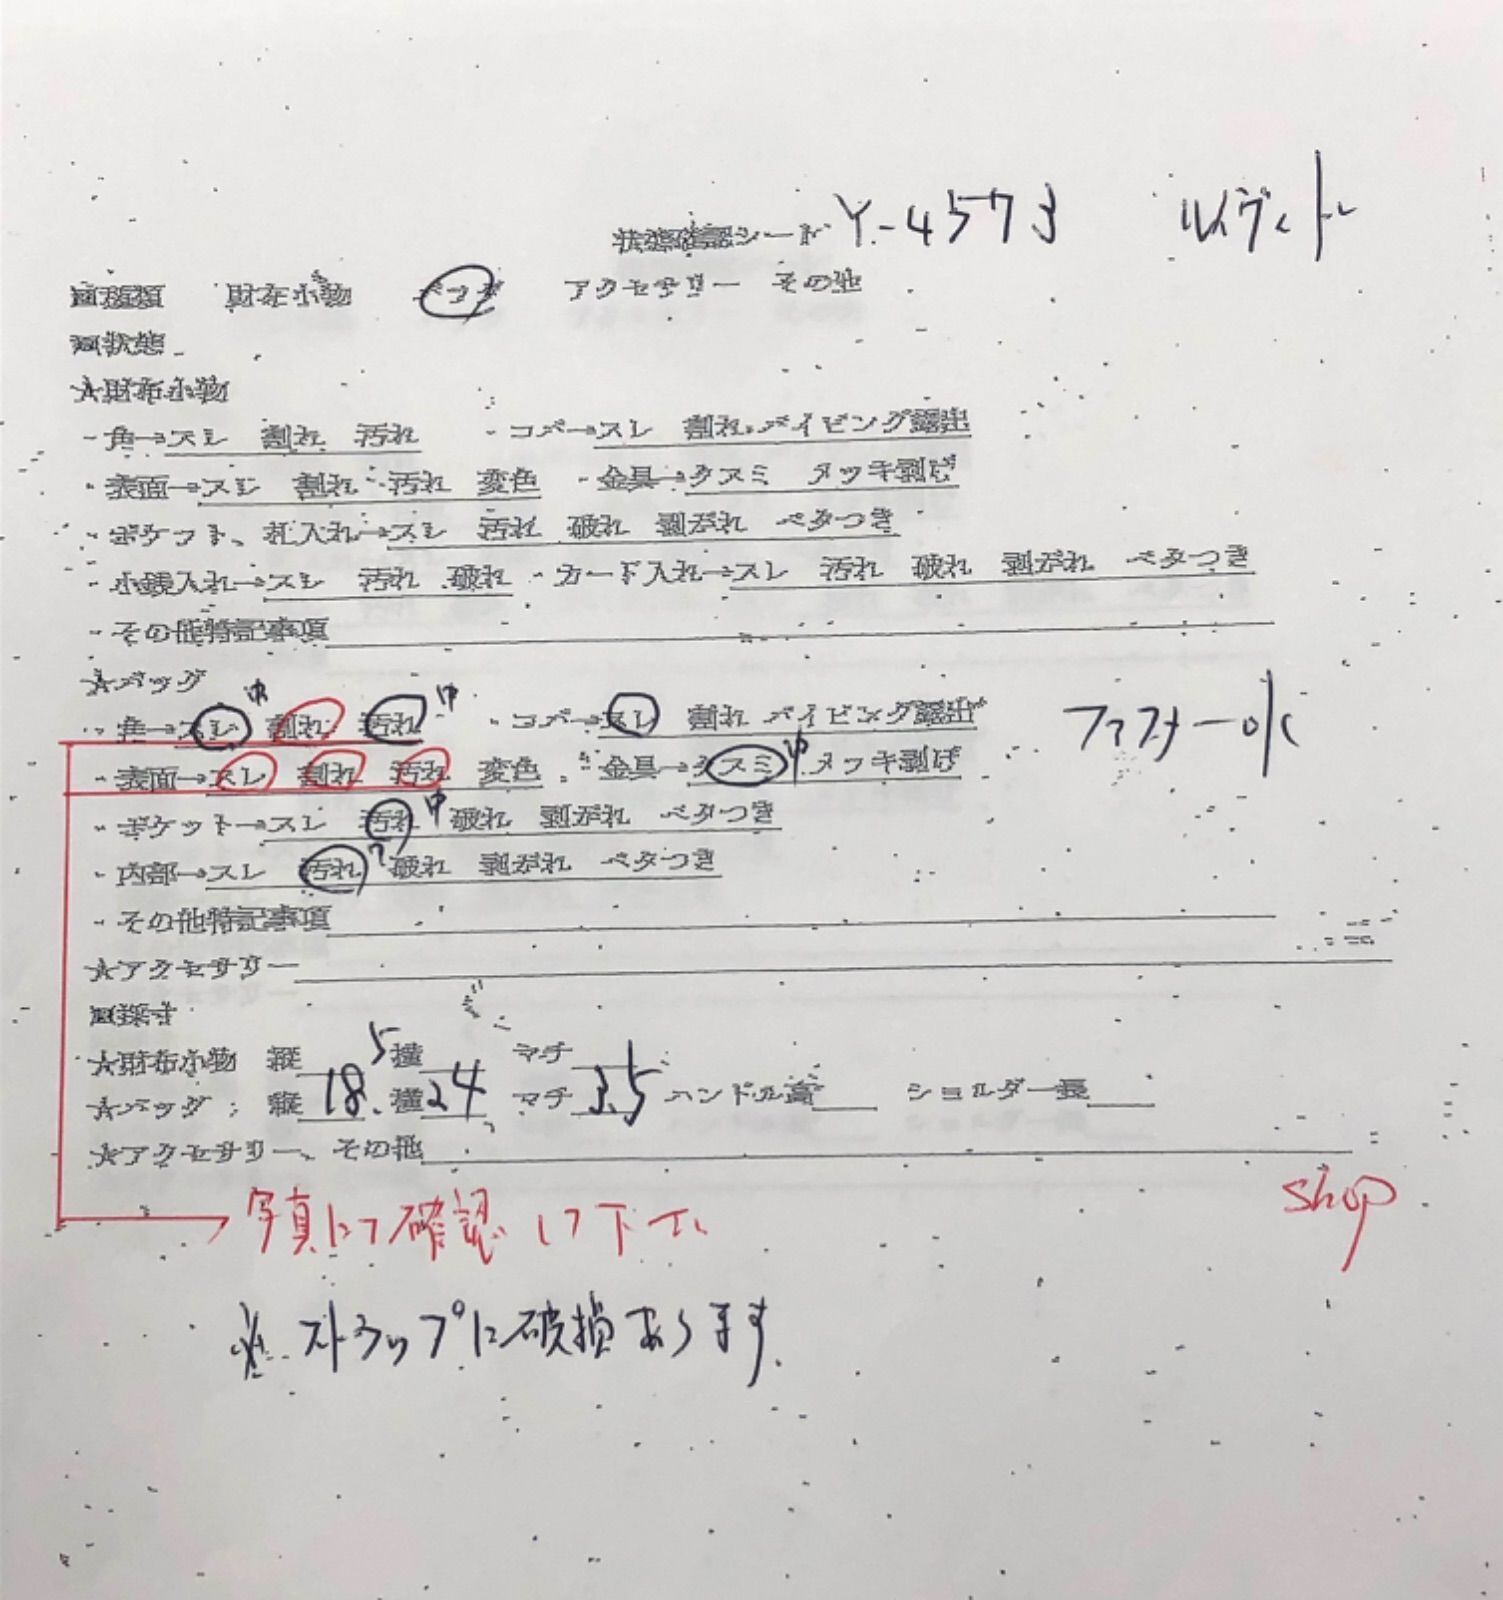 状態確認シート Y-4573 ルイヴィトン
■種類 財布小物 バッグ アクセサリー その他
■状態
★財布小物
・角→スレ 割れ 汚れ ・コバ→スレ 割れ パイピング露出
・表面→スレ 割れ 汚れ 変色 ・金具→クスミ メッキ剥げ
・ポケット、札入れ→スレ 汚れ 破れ 剥がれ ベタつき
・小銭入れ→スレ 汚れ 破れ ・カード入れ→スレ 汚れ 破れ 剥がれ ベタつき
・その他特記事項
★バッグ
・角→スレ 中 割れ 汚れ 中 ・コバ→スレ 割れ パイピング露出
・表面→スレ 割れ 汚れ 変色 ・金具→クスミ 中 メッキ剥げ
・ポケット→スレ 汚れ 中 破れ 剥がれ ベタつき
・内部→スレ 汚れ 破れ 剥がれ ベタつき
・その他特記事項
★アクセサリー
■採寸
★財布小物 縦 横 マチ
★バッグ: 縦 18.5 横 24 マチ 3.5 ハンドル高 ショルダー長
★アクセサリー、その他
写真にて確認して下さい
shop
※ストラップに破損あります